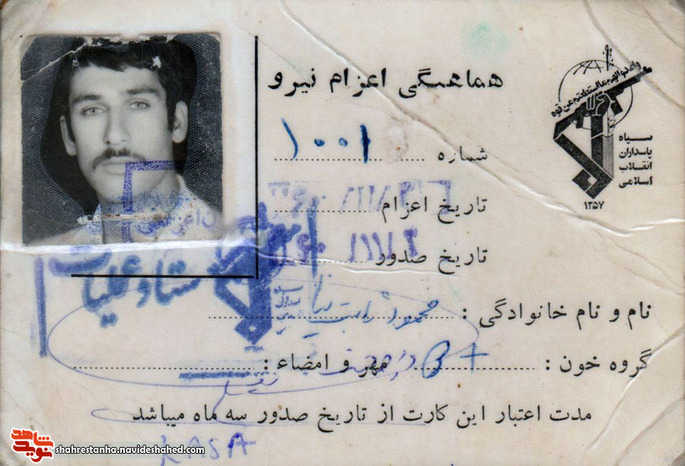 هماهنگی اعزام نیرو
واعدوا لهم ما استطعتم من قوه
سپاه
پاسداران
انقلاب
اسلامی
۱۳۵۷
شماره ۱۰۰۱
تاریخ اعزام ۶۰/۱۱/۳
تاریخ صدور ۶۰/۱۱/۳
ستاد عملیات
نام و نام خانوادگی : محمود
گروه خون : B+ مهر و امضاء :
مدت اعتبار این کارت از تاریخ صدور سه ماه میباشد
نوید شاهد
shahrestanha.navideshahed.com